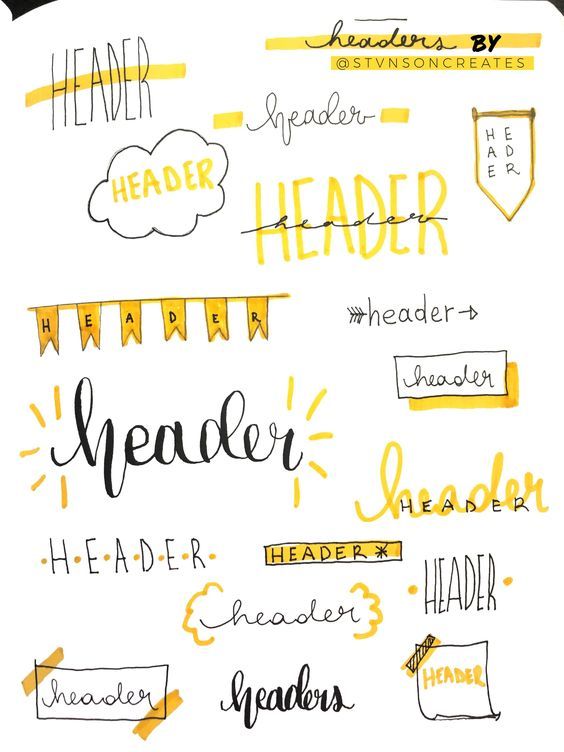 headers BY
@STVNSONCREATES
HEADER
header
HEADER
HE
AD
ER
HEADER
header
HEADER
header
header
header
header
HEADER
H·E·A·D·E·R
HEADER *
HEADER
header
header
headers
HEADER